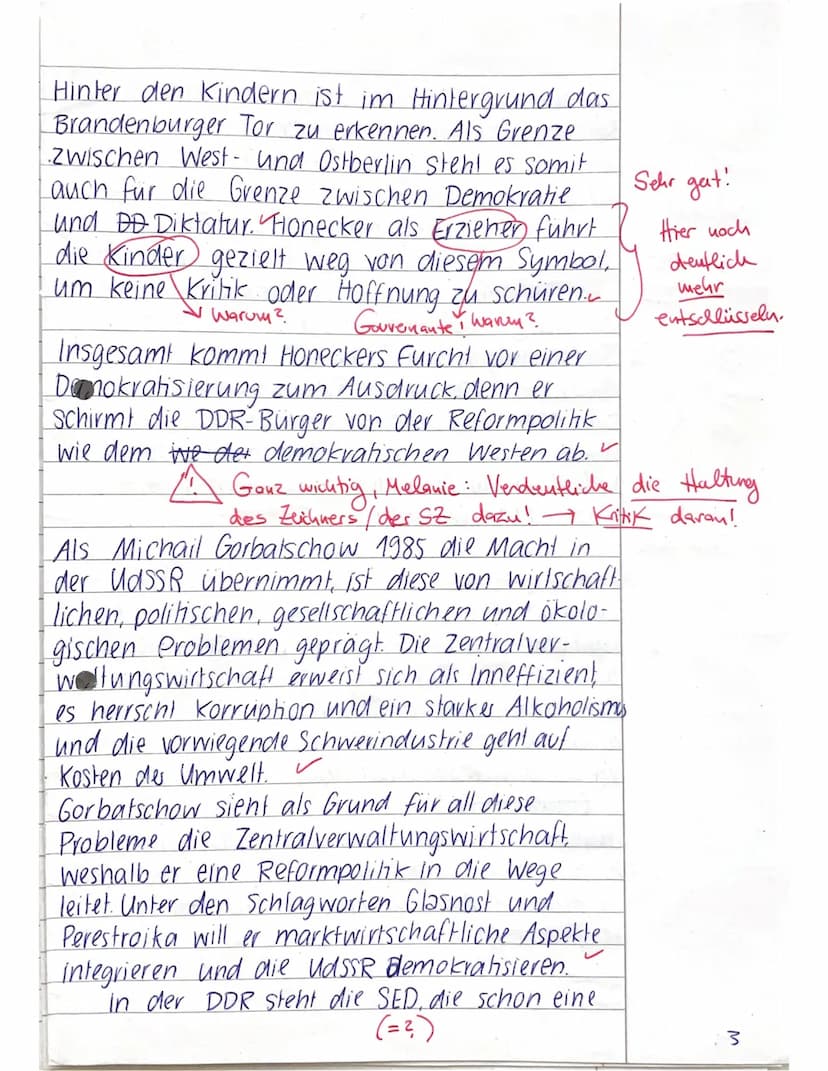 Hinter den Kindern ist im Hintergrund das
Brandenburger Tor zu erkennen. Als Grenze
zwischen West- und Ostberlin steht es somit
auch für die Grenze zwischen Demokratie
und DD Diktatur. Honecker als Erzieher führt
die Kinder gezielt weg von diesem Symbol,
um keine Kritik oder Hoffnung zu schüren.
Sehr gut!
Hier noch
deutlich
mehr
entschlüsseln.
→ Warum?
Gouvernante! Warum?
Insgesamt kommt Honeckers Furcht vor einer
Demokratisierung zum Ausdruck, denn er
schirmt die DDR-Bürger von der Reformpolitik
wie dem we der demokratischen Westen ab.
! Ganz wichtig, Melanie: Verdeutliche die Haltung
des Zeichners / der SZ dazu! → Kritik daran!
Als Michail Gorbatschow 1985 die Macht in
der UdSSR übernimmt, ist diese von wirtschaft-
lichen, politischen, gesellschaftlichen und ökolo-
gischen Problemen geprägt. Die Zentralver-
waltungswirtschaft erweist sich als Inneffizient,
es herrscht Korruption und ein starker Alkoholismus
und die vorwiegende Schwerindustrie geht auf
Kosten der Umwelt.
Gorbatschow sieht als Grund für all diese
Probleme die Zentralverwaltungswirtschaft,
weshalb er eine Reformpolitik in die Wege
leitet. Unter den Schlagworten Glasnost und
Perestroika will er marktwirtschaftliche Aspekte
integrieren und die UdSSR demokratisieren.
In der DDR steht die SED, die schon eine
(=?)
3